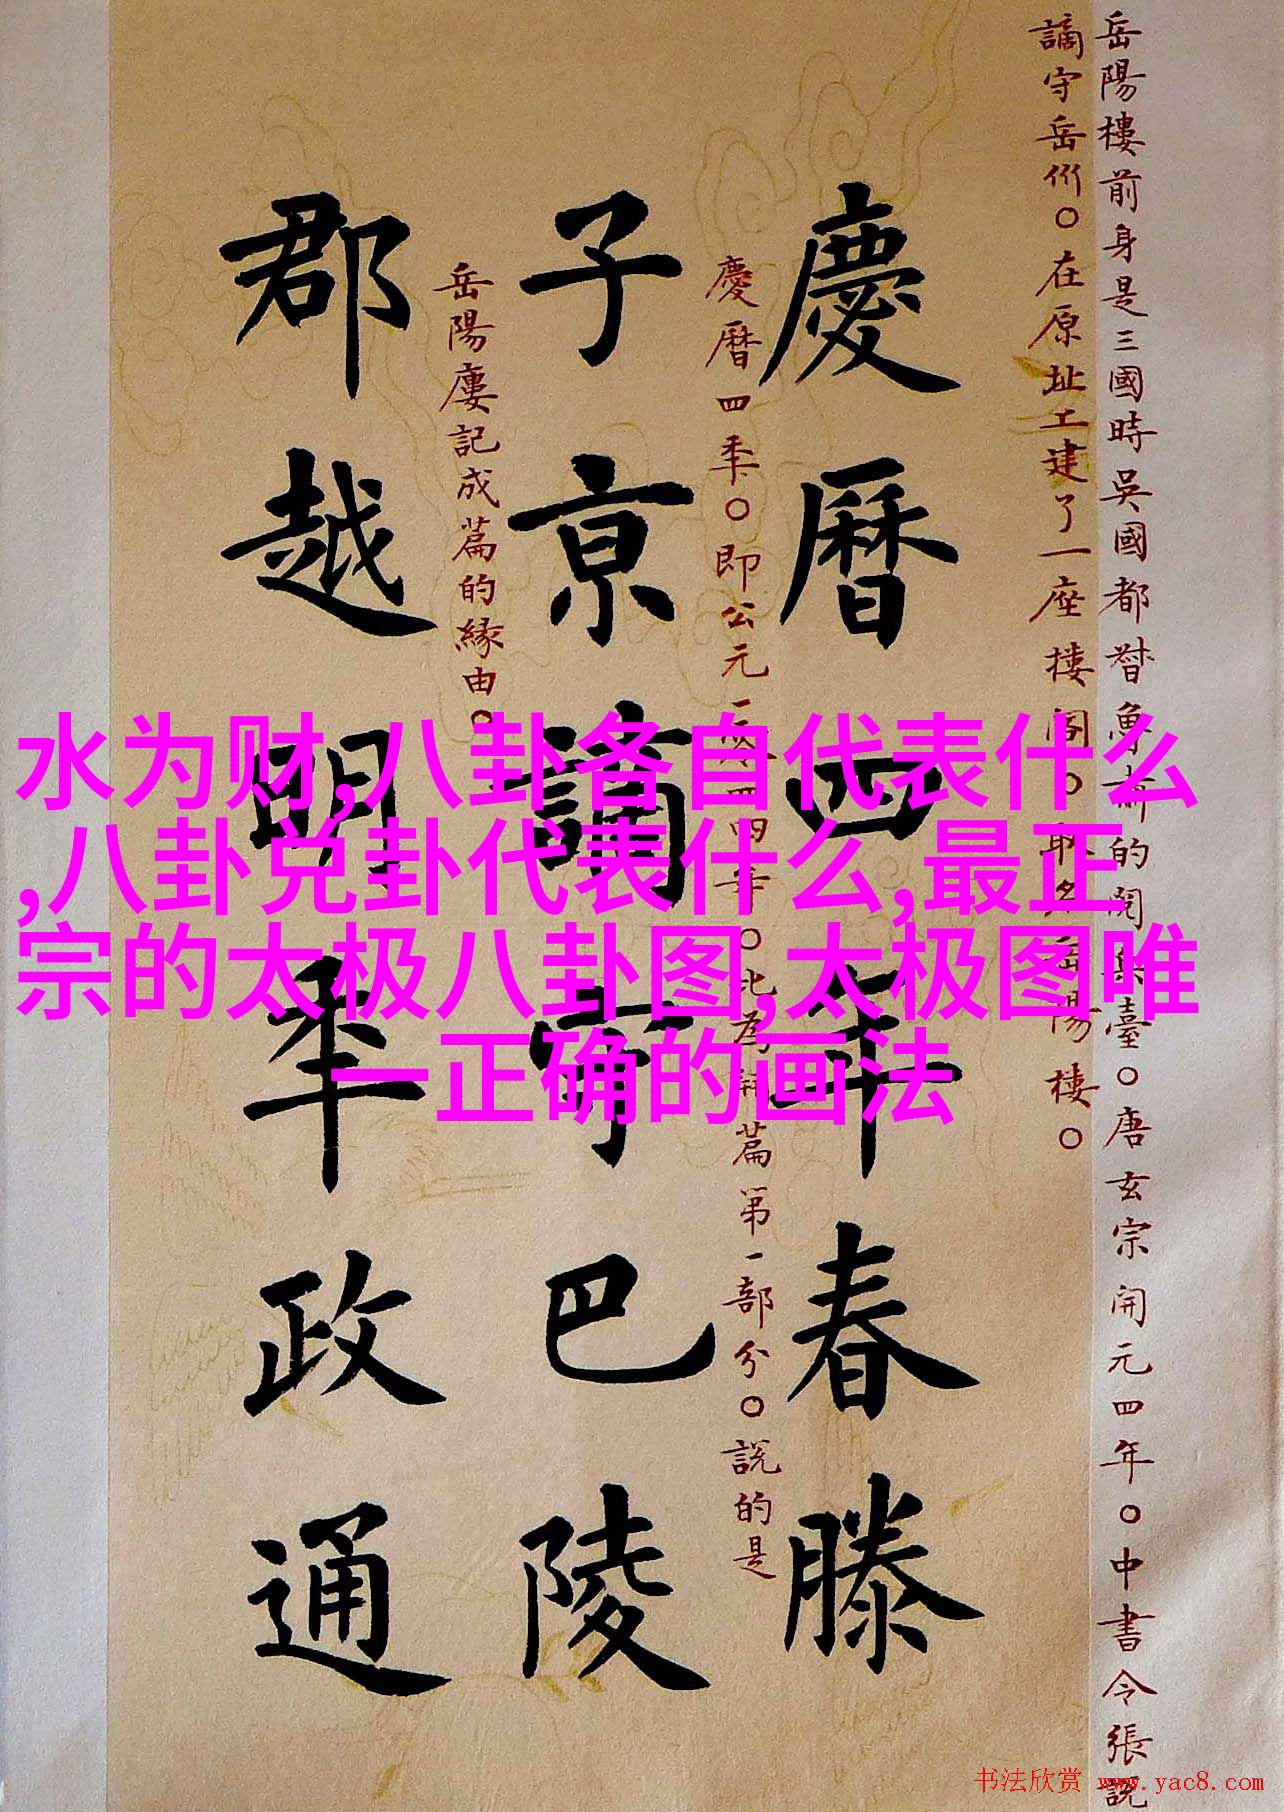 岳陽樓前身是三國時吳國都督魯肅的閱兵臺○唐玄宗開元四年○中書令張説
謫守岳州○在原址上建了一座樓閣○取名岳陽樓○
慶曆四年春滕
慶曆四年○即公元一四四年○此為篇第一部分○説的是
子京謫守巴陵
岳陽廔記成篇的緣由○
郡越明年政通
水为财,八卦各自代表什么
,八卦兑卦代表什么,最正
宗的太极八卦图,太极图唯
一正确的画法
书法欣赏 www.yac8.com